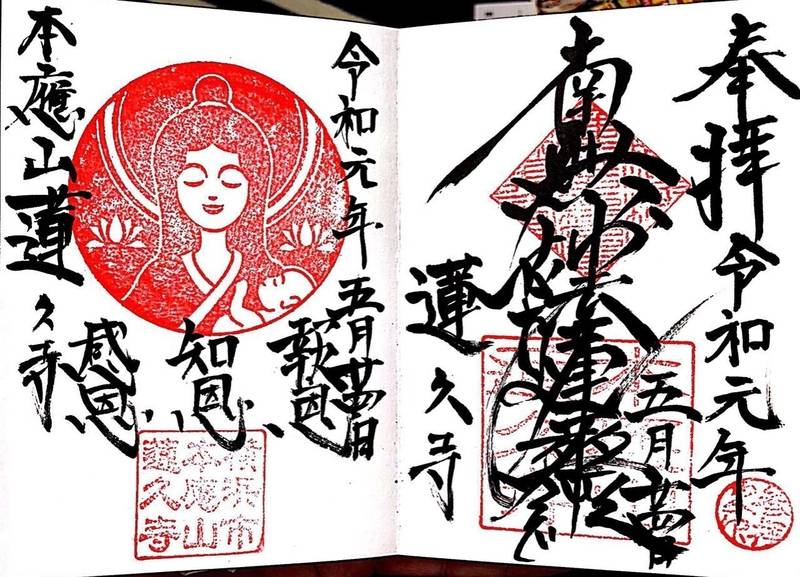 奉拝
令和元年
五月廿四日
南無妙法蓮華経
蓮久寺
令和元年五月廿四日
報恩
知恩
感恩
本應山蓮久寺
本應山
蓮久寺